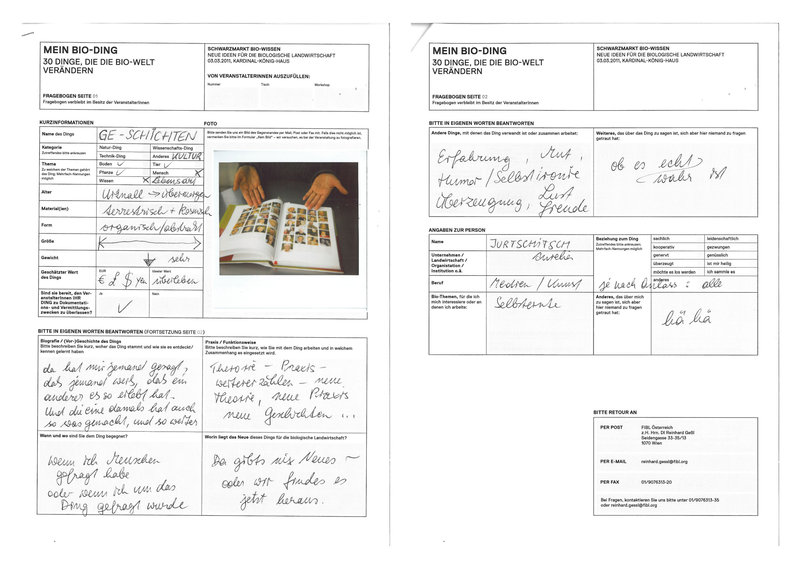 MEIN BIO-DING
30 DINGE, DIE DIE BIO-WELT
VERÄNDERN
FRAGEBOGEN SEITE 01
Fragebogen verbleibt im Besitz der VeranstalterInnen
SCHWARZMARKT BIO-WISSEN
NEUE IDEEN FÜR DIE BIOLOGISCHE LANDWIRTSCHAFT
03.03.2011, KARDINAL-KÖNIG-HAUS
VON VERANSTALTERINNEN AUSZUFÜLLEN:
Nummer Tisch Workshop
KURZINFORMATIONEN
Name des Dings GE-SCHICHTEN
Kategorie
Zutreffendes bitte ankreuzen
Natur-Ding Wissenschafts-Ding
Technik-Ding Anderes KULTUR
Thema
Zu welchem der Themen gehört
das Ding; Mehrfach-Nennungen
möglich
Boden ✓ Tier ✓
Pflanze ✓ Mensch X
Wissen X Lebensart
Alter Urknall → übermorgen
Material(ien) terrestrisch + kosmisch
Form organisch/abstrakt
Größe
Gewicht sehr
Geschätzter Wert
des Dings
EUR Idealer Wert
€ £ $ Yen überleben
Sind sie bereit, den Ver-
anstalterInnen IHR
DING zu Dokumentati-
ons- und Vermittlungs-
zwecken zu überlassen?
Ja Nein
✓
FOTO
Bitte senden Sie uns ein Bild des Gegenstandes per Mail, Post oder Fax mit. Falls dies nicht möglich ist,
vermerken Sie bitte im Formular „Kein Bild“ – wir versuchen, vor/bei der Veranstaltung zu fotografieren.
BITTE IN EIGENEN WORTEN BEANTWORTEN (FORTSETZUNG SEITE 02)
Biografie / (Vor-)Geschichte des Dings
Bitte beschreiben Sie kurz, woher das Ding stammt und wie sie es entdeckt/
kennen gelernt haben
da hat mir jemand gesagt,
daß jemand weiß, daß ein
anderer es so erlebt hat.
Und die eine damals hat auch
so was gemacht, und so weiter
Praxis / Funktionsweise
Bitte beschreiben Sie kurz, wie Sie mit dem Ding arbeiten und in welchem
Zusammenhang es eingesetzt wird.
Theorie – Praxis –
weitererzählen – neue
Theorie, neue Praxis
neue Geschichten ...
Wann und wo sind Sie dem Ding begegnet?
wenn ich Menschen
gefragt habe
oder wenn ich um das
Ding gefragt wurde
Worin liegt das Neue dieses Dings für die biologische Landwirtschaft?
Da gibts nix Neues –
oder wir finden es
jetzt heraus.
MEIN BIO-DING
30 DINGE, DIE DIE BIO-WELT
VERÄNDERN
FRAGEBOGEN SEITE 02
Fragebogen verbleibt im Besitz der VeranstalterInnen
SCHWARZMARKT BIO-WISSEN
NEUE IDEEN FÜR DIE BIOLOGISCHE LANDWIRTSCHAFT
03.03.2011, KARDINAL-KÖNIG-HAUS
BITTE IN EIGENEN WORTEN BEANTWORTEN
Andere Dinge, mit denen das Ding verwandt ist oder zusammen arbeitet:
Erfahrung, Mut,
Humor / Selbstironie
Überzeugung, Lust
Freude
Weiteres, das über das Ding zu sagen ist, sich aber hier niemand zu fragen
getraut hat:
ob es echt
wahr ist
ANGABEN ZUR PERSON
Name JURTSCHITSCH
Unternehmen /
Landwirtschaft /
Organisation /
Institution o.ä.
Beruf Medien / Kunst
Bio-Themen, für die ich
mich interessiere oder an
denen ich arbeite:
Selbsternte
Beziehung zum Ding
Zutreffendes bitte ankreuzen;
Mehrfach-Nennungen möglich
sachlich leidenschaftlich
kooperativ gezwungen
genervt genüsslich
überzeugt ist mir heilig
möchte es los werden ich sammle es
anderes
je nach Anlass: alle
Anderes, das über mich
zu sagen ist, sich aber
hier niemand zu fragen
getraut hat:
hä hä
BITTE RETOUR AN
PER POST FiBL Österreich
z.H. Hrn. DI Reinhard Geßl
Seidengasse 33-35/13
1070 Wien
PER E-MAIL reinhard.gessl@fibl.org
PER FAX 01/9076313-20
Bei Fragen, kontaktieren Sie uns bitte unter 01/9076313-35
oder reinhard.gessl@fibl.org